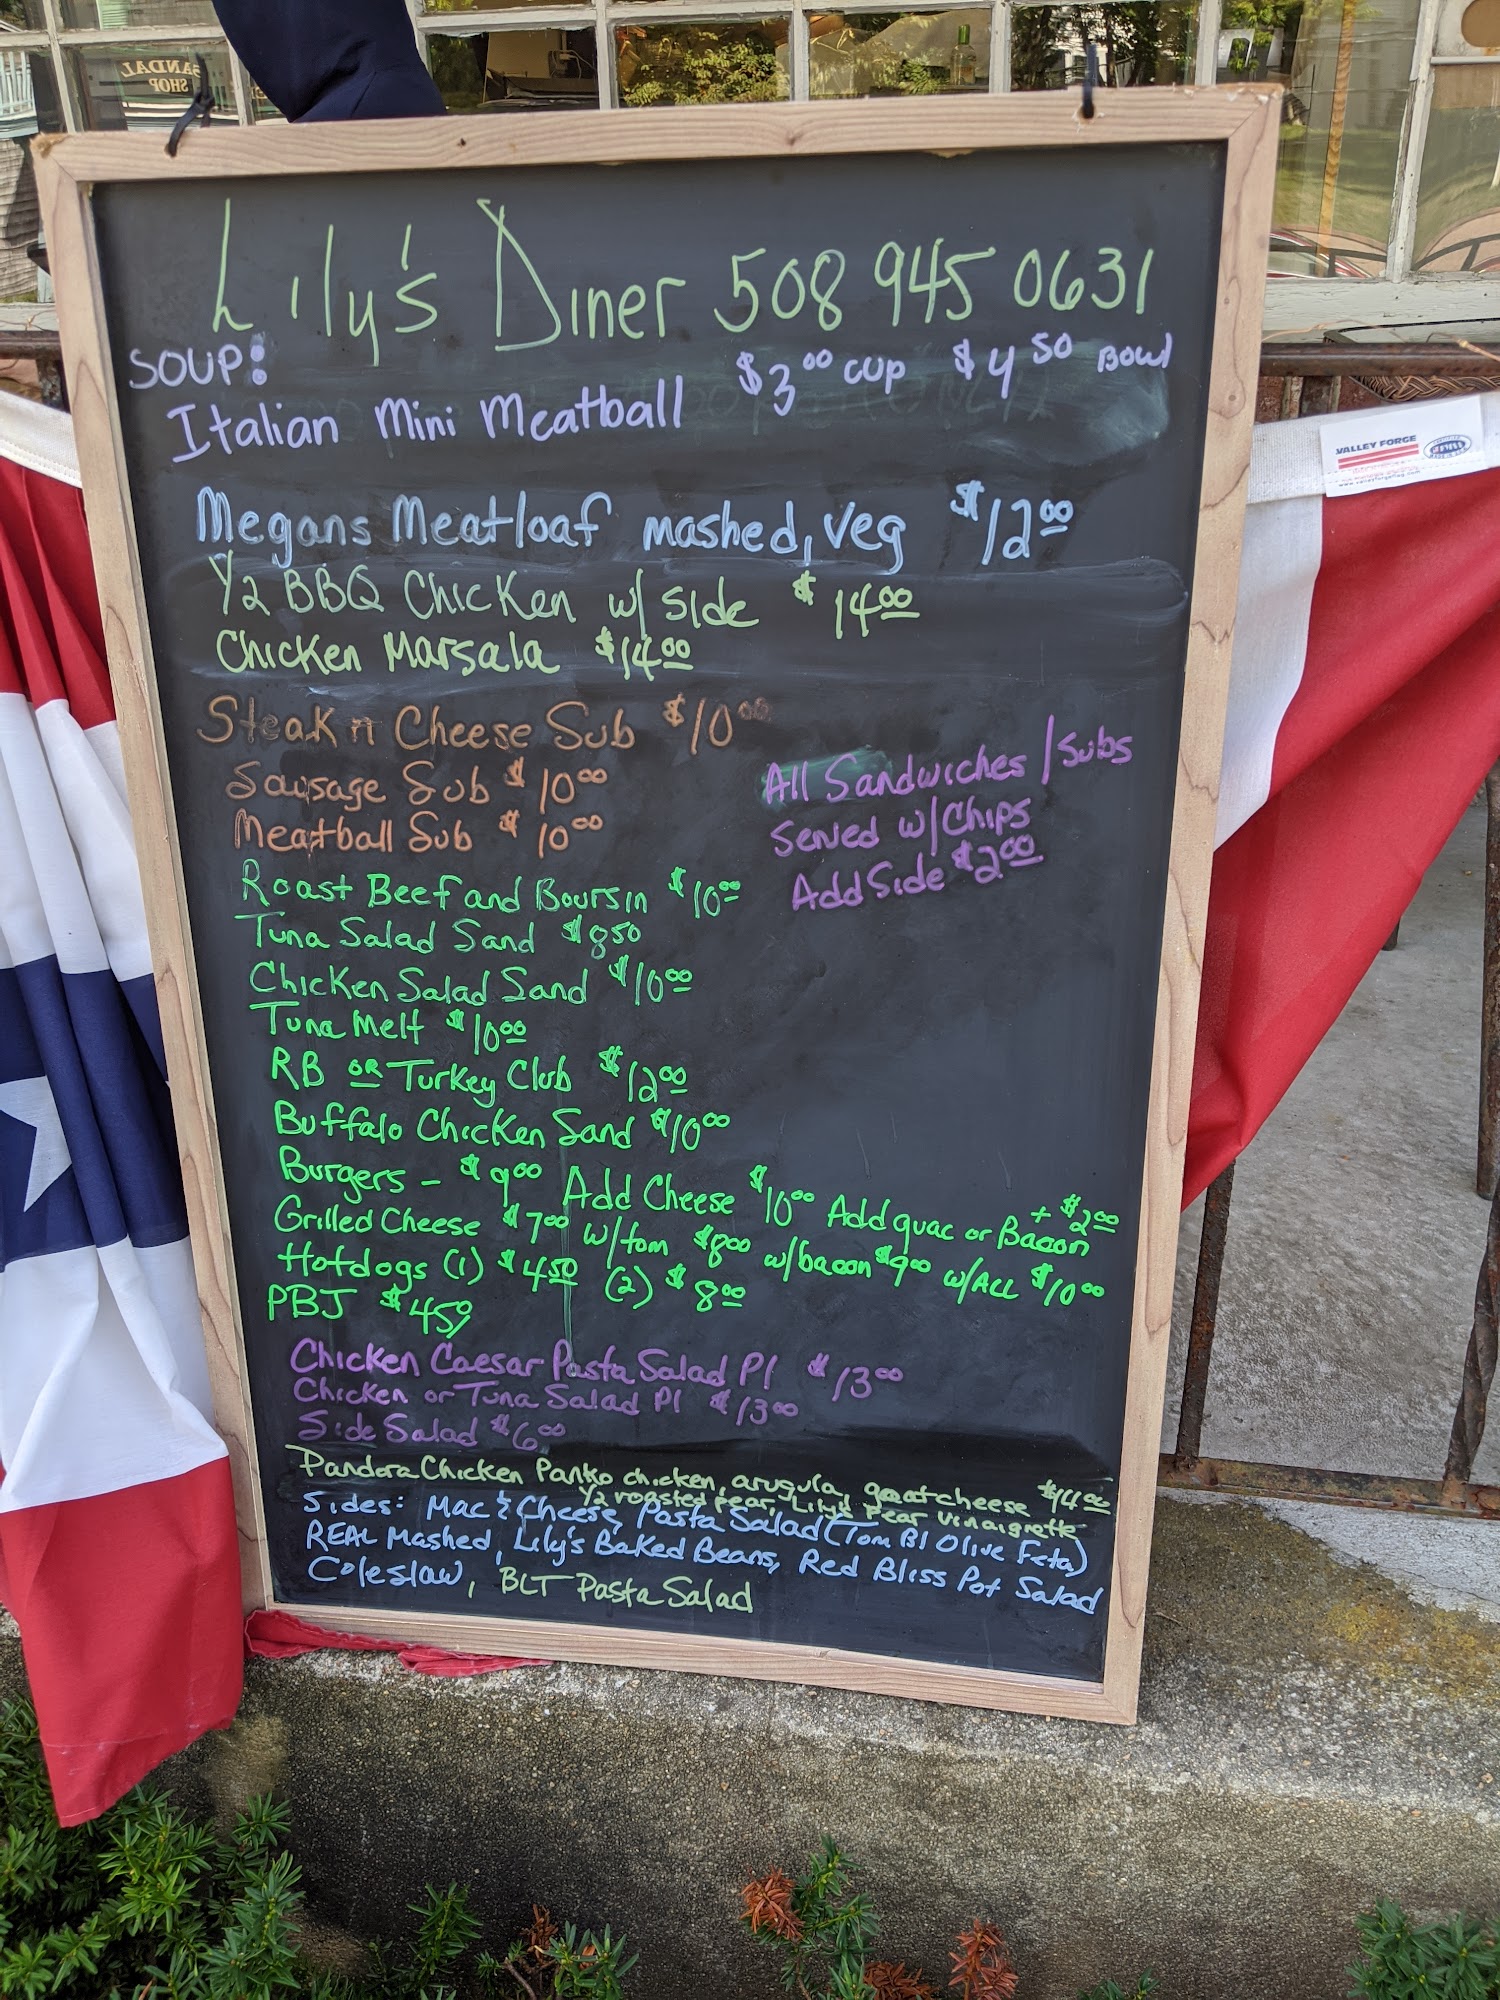 SANDAL
SHOP
Lily's Diner 508 945 0631
SOUP:
Italian Mini Meatball $3.00 CUP $4.50 Bowl
VALLEY FORGE
Megans Meatloaf mashed, veg $12.00
1/2 BBQ Chicken w/ side $14.00
Chicken Marsala $14.00
Steak n Cheese Sub $10.00
Sausage Sub $10.00
Meatball Sub $10.00
All Sandwiches/Subs
Served w/Chips
Add Side $2.00
Roast Beef and Boursin $10.00
Tuna Salad Sand $8.50
Chicken Salad Sand $10.00
Tuna Melt $10.00
RB OR Turkey Club $12.00
Buffalo Chicken Sand $10.00
Burgers - $9.00 Add Cheese $10.00 Add guac or Bacon + $2.00
Grilled Cheese $7.00 w/tom $8.00 w/bacon $9.00 w/ALL $10.00
Hotdogs (1) $4.50 (2) $8.00
PBJ $4.50
Chicken Caesar Pasta Salad Pl $13.00
Chicken or Tuna Salad Pl $13.00
Side Salad $6.00
Pandora Chicken Panko chicken, arugula, goat cheese $14.00
1/2 roasted pear, Lily's Pear vinaigrette
Sides: Mac & Cheese, Pasta Salad (Tom Bl Olive Feta)
REAL Mashed, Lily's Baked Beans, Red Bliss Pot Salad
Coleslaw, BLT Pasta Salad